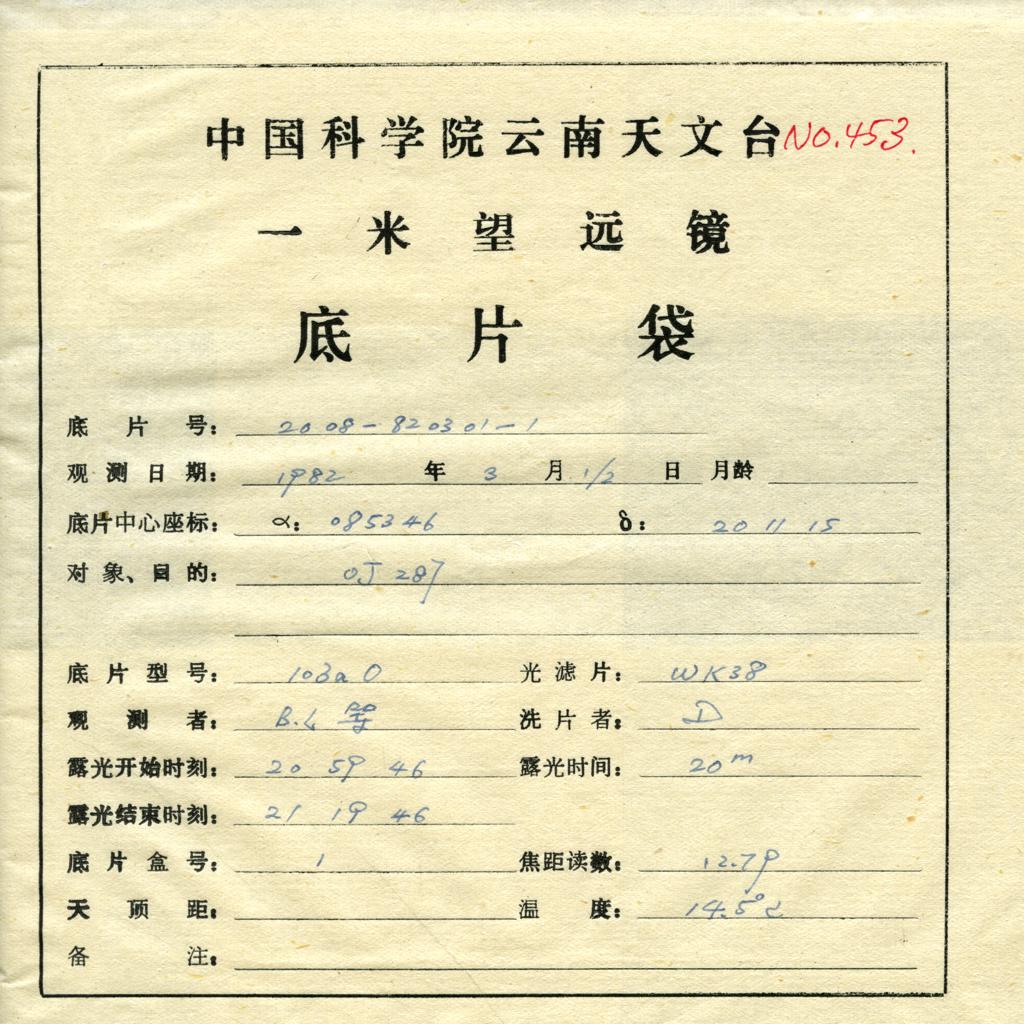 中国科学院云南天文台 NO.453.
一米望远镜
底片袋
底片号: 2008-820301-1
观测日期: 1982 年 3 月 1/2 日 月龄
底片中心座标: α: 085346 δ: 20 11 15
对象、目的: OJ 287
底片型号: 103aO 光滤片: WK38
观测者: B.L 等 洗片者: D
露光开始时刻: 20 59 46 露光时间: 20m
露光结束时刻: 21 19 46
底片盒号: 1 焦距读数: 12.79
天顶距: 温度: 14.5°c
备注: